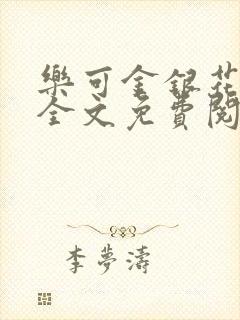 樂可金銀花
全文免費閱
李夢濤